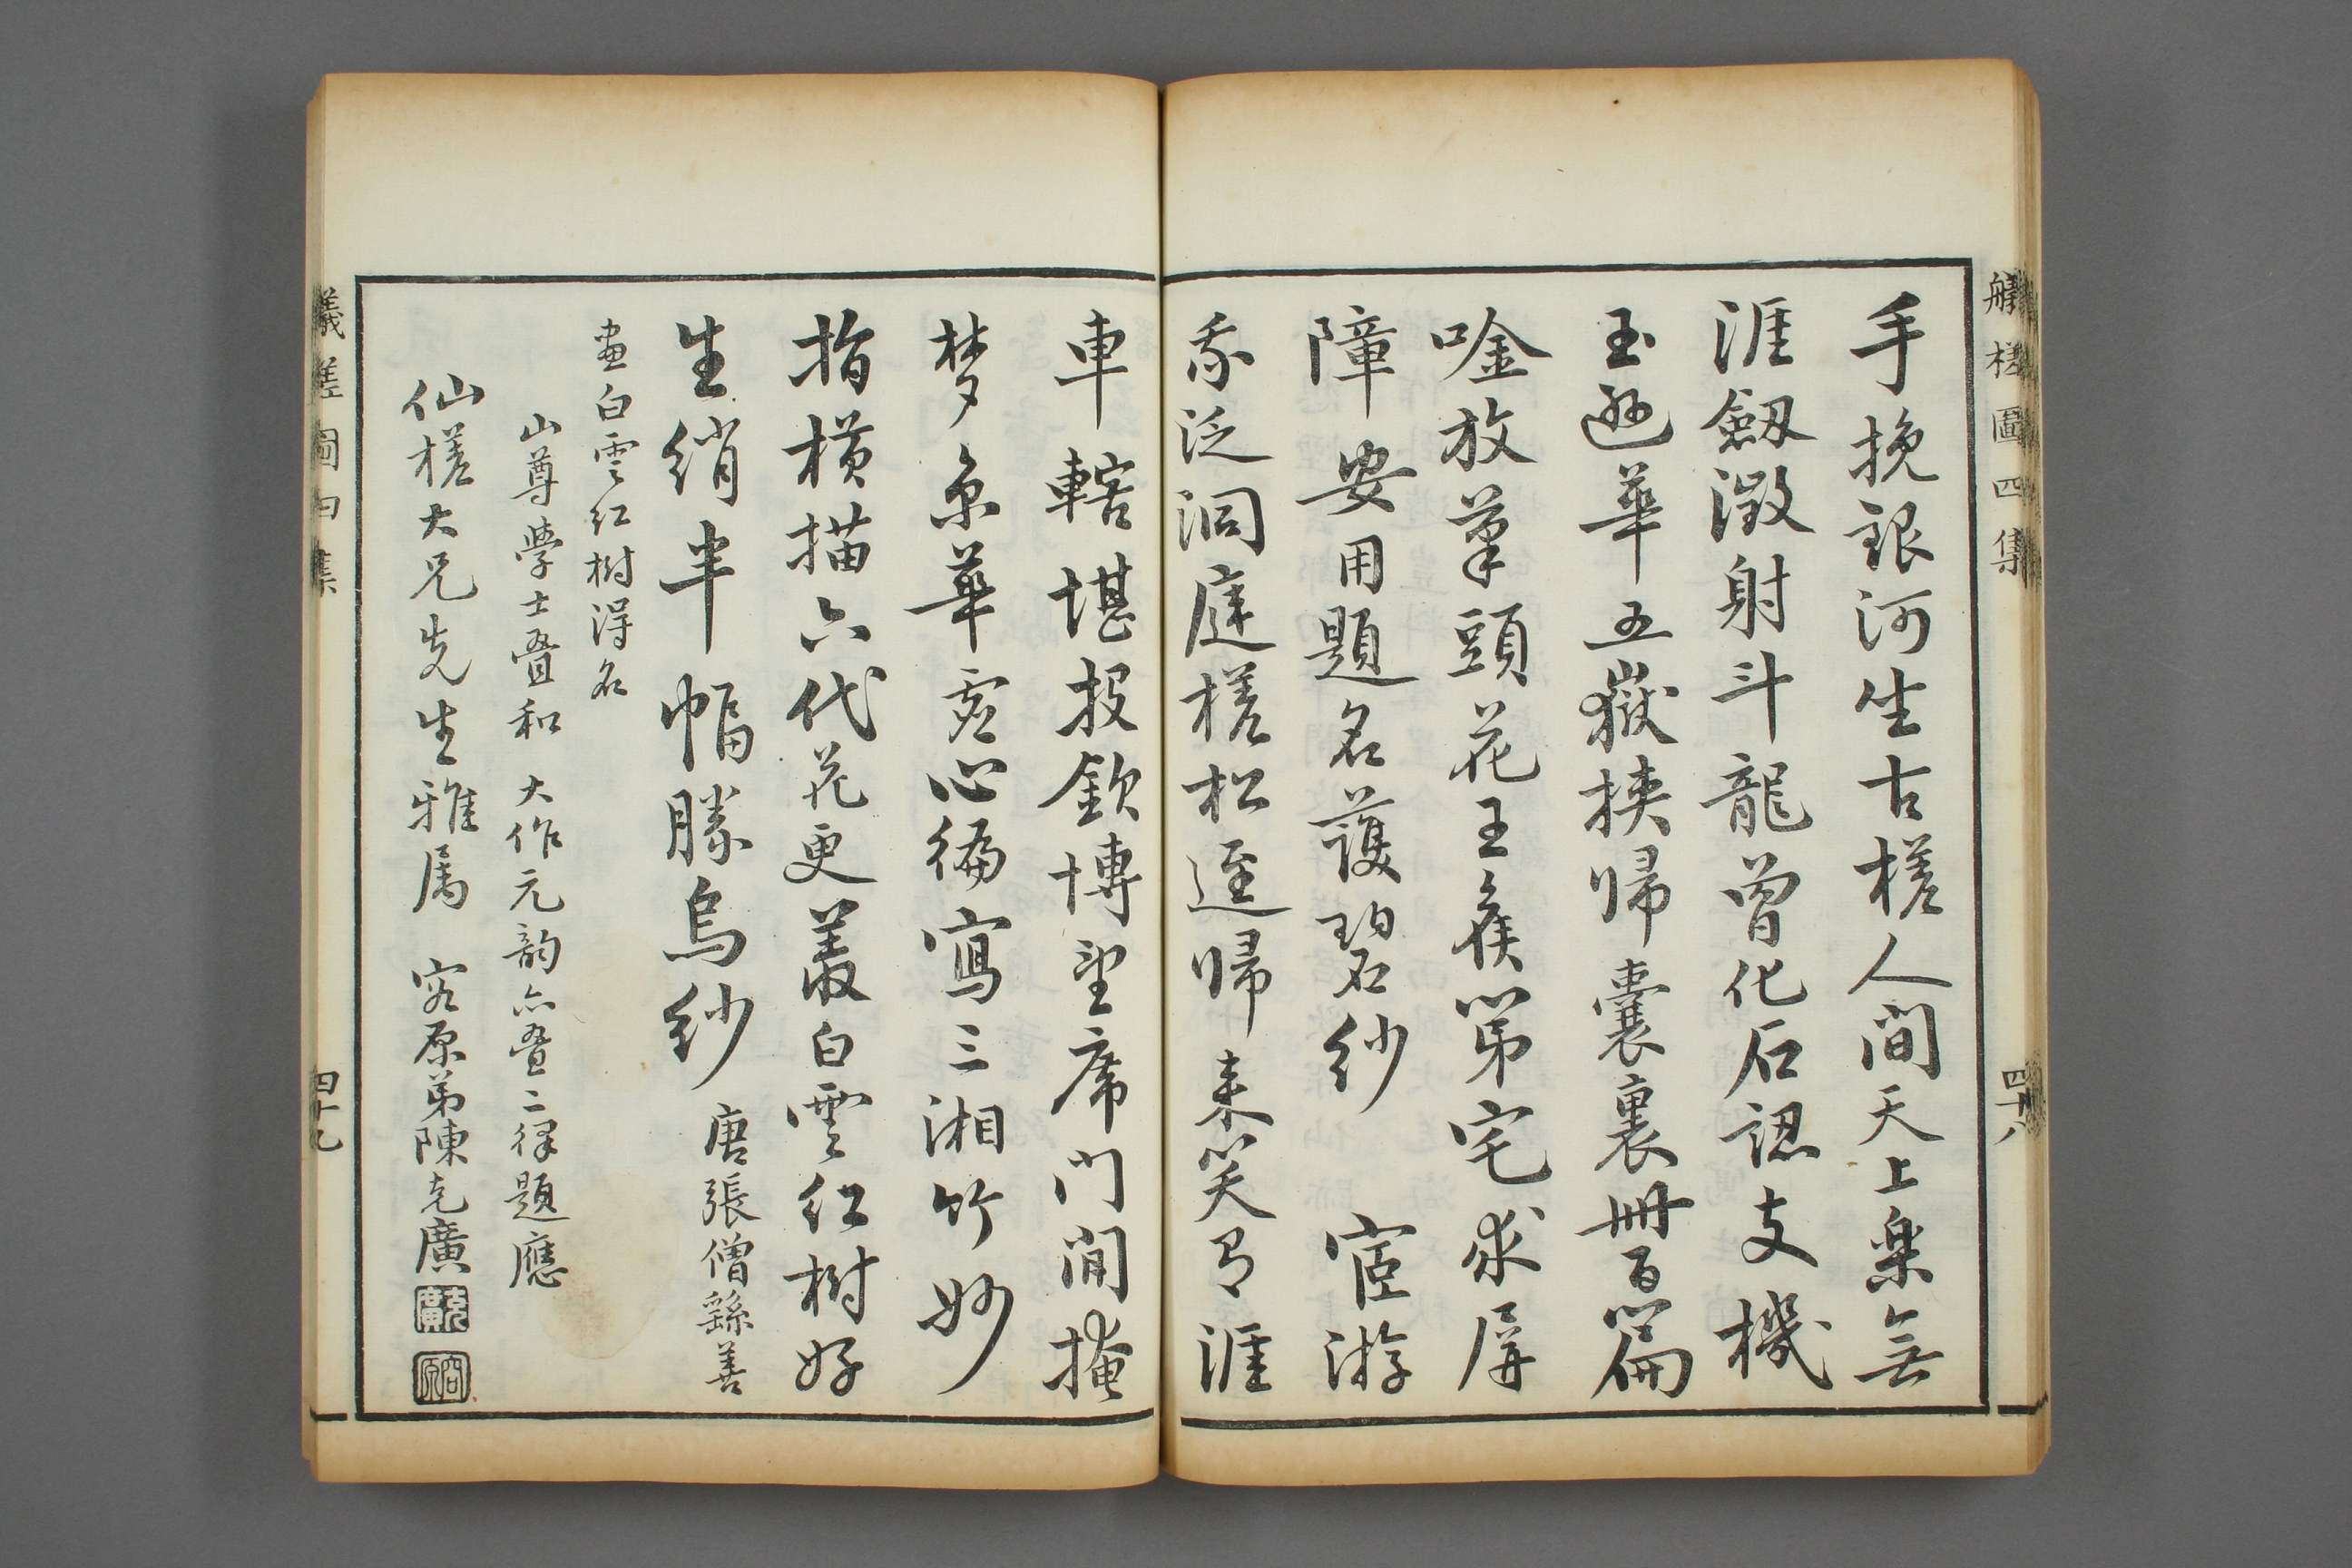 艤槎圖四集
四十八
手挽銀河坐古槎人間天上樂無
涯劔澂射斗龍曾化石認支機
玉遜華五嶽挾歸囊裏冊百篇
唫放筆頭花王矦第宅求屏
障安用題名護碧紗　宦游
我泛洞庭槎松逕歸来笑有涯
車轄堪投欽博望席門閒掩
梦京華虛心徧寫三湘竹妙
指橫描六代花更羨白雲紅樹好
生綃半幅勝烏紗
唐張僧繇善
畫白雲紅樹得名
山尊學士疊和　大作元韵亦疊二律題應
仙槎大兄先生雅属　容原弟陳克廣
克廣
容原
艤槎圖四集
四十九